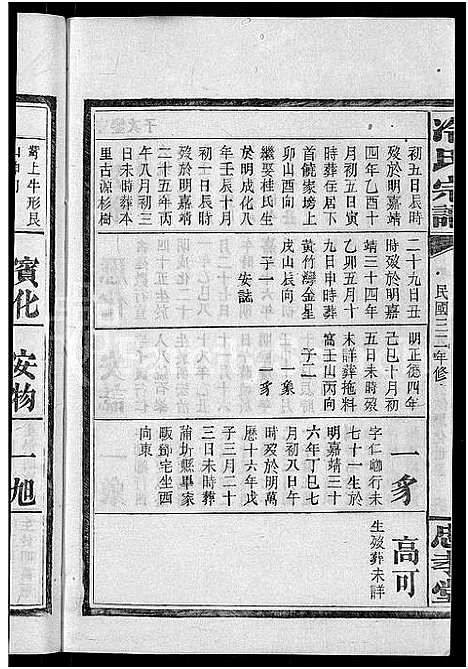 冷氏宗譜
民國三二年修
忠孝堂
初五日辰時
歿於明嘉靖
四年乙酉十
月初五日寅
時葬住居下
首饒家塝上
卯山酉向
繼娶桂氏生
於明成化八
年壬辰十月
初一日辰時
歿於明嘉靖
二十五年丙
午八月初三
日未時葬古
里古源杉樹
二十九日丑
時歿於明嘉
靖三十四年
乙卯五月十
九日申時葬
黃竹灣金星
戌山辰向
子一
安誌
明正德四年
己巳十月初
五日未時歿
未詳葬拖料
窩壬山丙向
子二
一象
一豸
一豸
字仁卿行未
七十一生於
明嘉靖三十
六年丁巳七
月初八日午
時歿於明萬
曆十六年戊
子三月二十
三日未時葬
蒲圻縣畢家
畈鄧宅坐西
向東
高可
生歿葬未詳
對上牛形艮
山坤向
賓化
安物
一旭